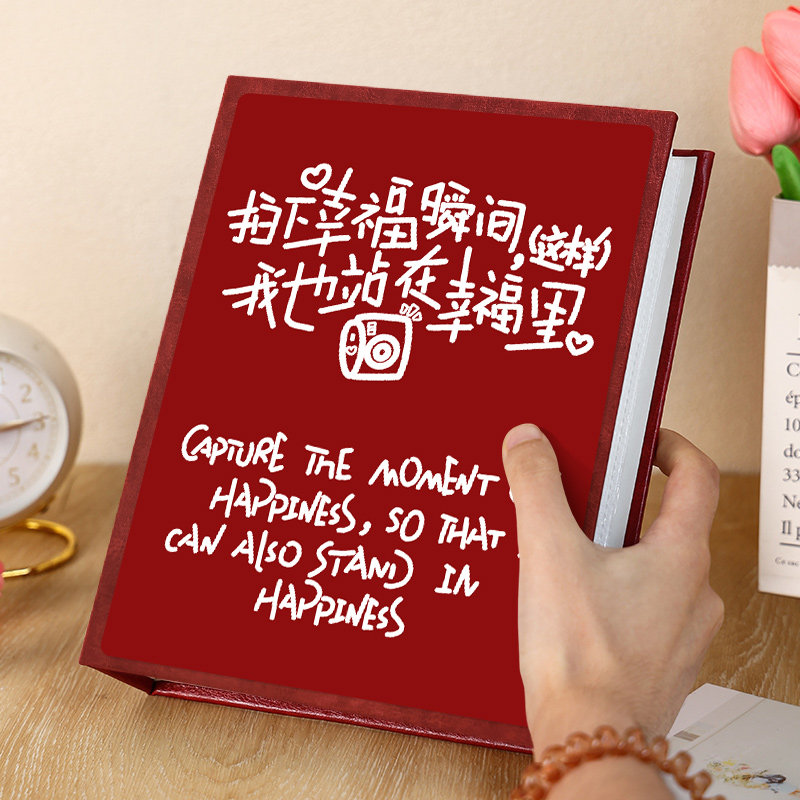 拍下幸福瞬间,(这样)
我也站在幸福里
CAPTURE THE MOMENT
HAPPINESS, SO THAT
CAN ALSO STAND IN
HAPPINESS
C
ép
10
do
33
No
Il p